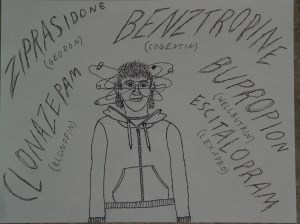 ZIPRASIDONE
(GEODON)
BENZTROPINE
(COGENTIN)
CLONAZEPAM
(KLONOPIN)
BUPROPION
(WELLBUTRIN)
ESCITALOPRAM
(LEXAPRO)